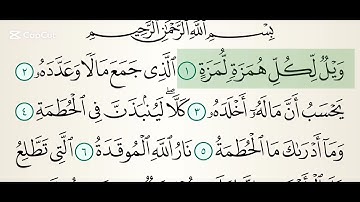 CapCut
بِسْمِ ٱللَّهِ ٱلرَّحْمَٰنِ ٱلرَّحِيمِ
وَيْلٌ لِّكُلِّ هُمَزَةٍ لُّمَزَةٍ ١ ٱلَّذِى جَمَعَ مَالًا وَعَدَّدَهُۥ ٢
يَحْسَبُ أَنَّ مَالَهُۥٓ أَخْلَدَهُۥ ٣ كَلَّا ۖ لَيُنۢبَذَنَّ فِى ٱلْحُطَمَةِ ٤
وَمَآ أَدْرَىٰكَ مَا ٱلْحُطَمَةُ ٥ نَارُ ٱللَّهِ ٱلْمُوقَدَةُ ٦ ٱلَّتِى تَطَّلِعُ